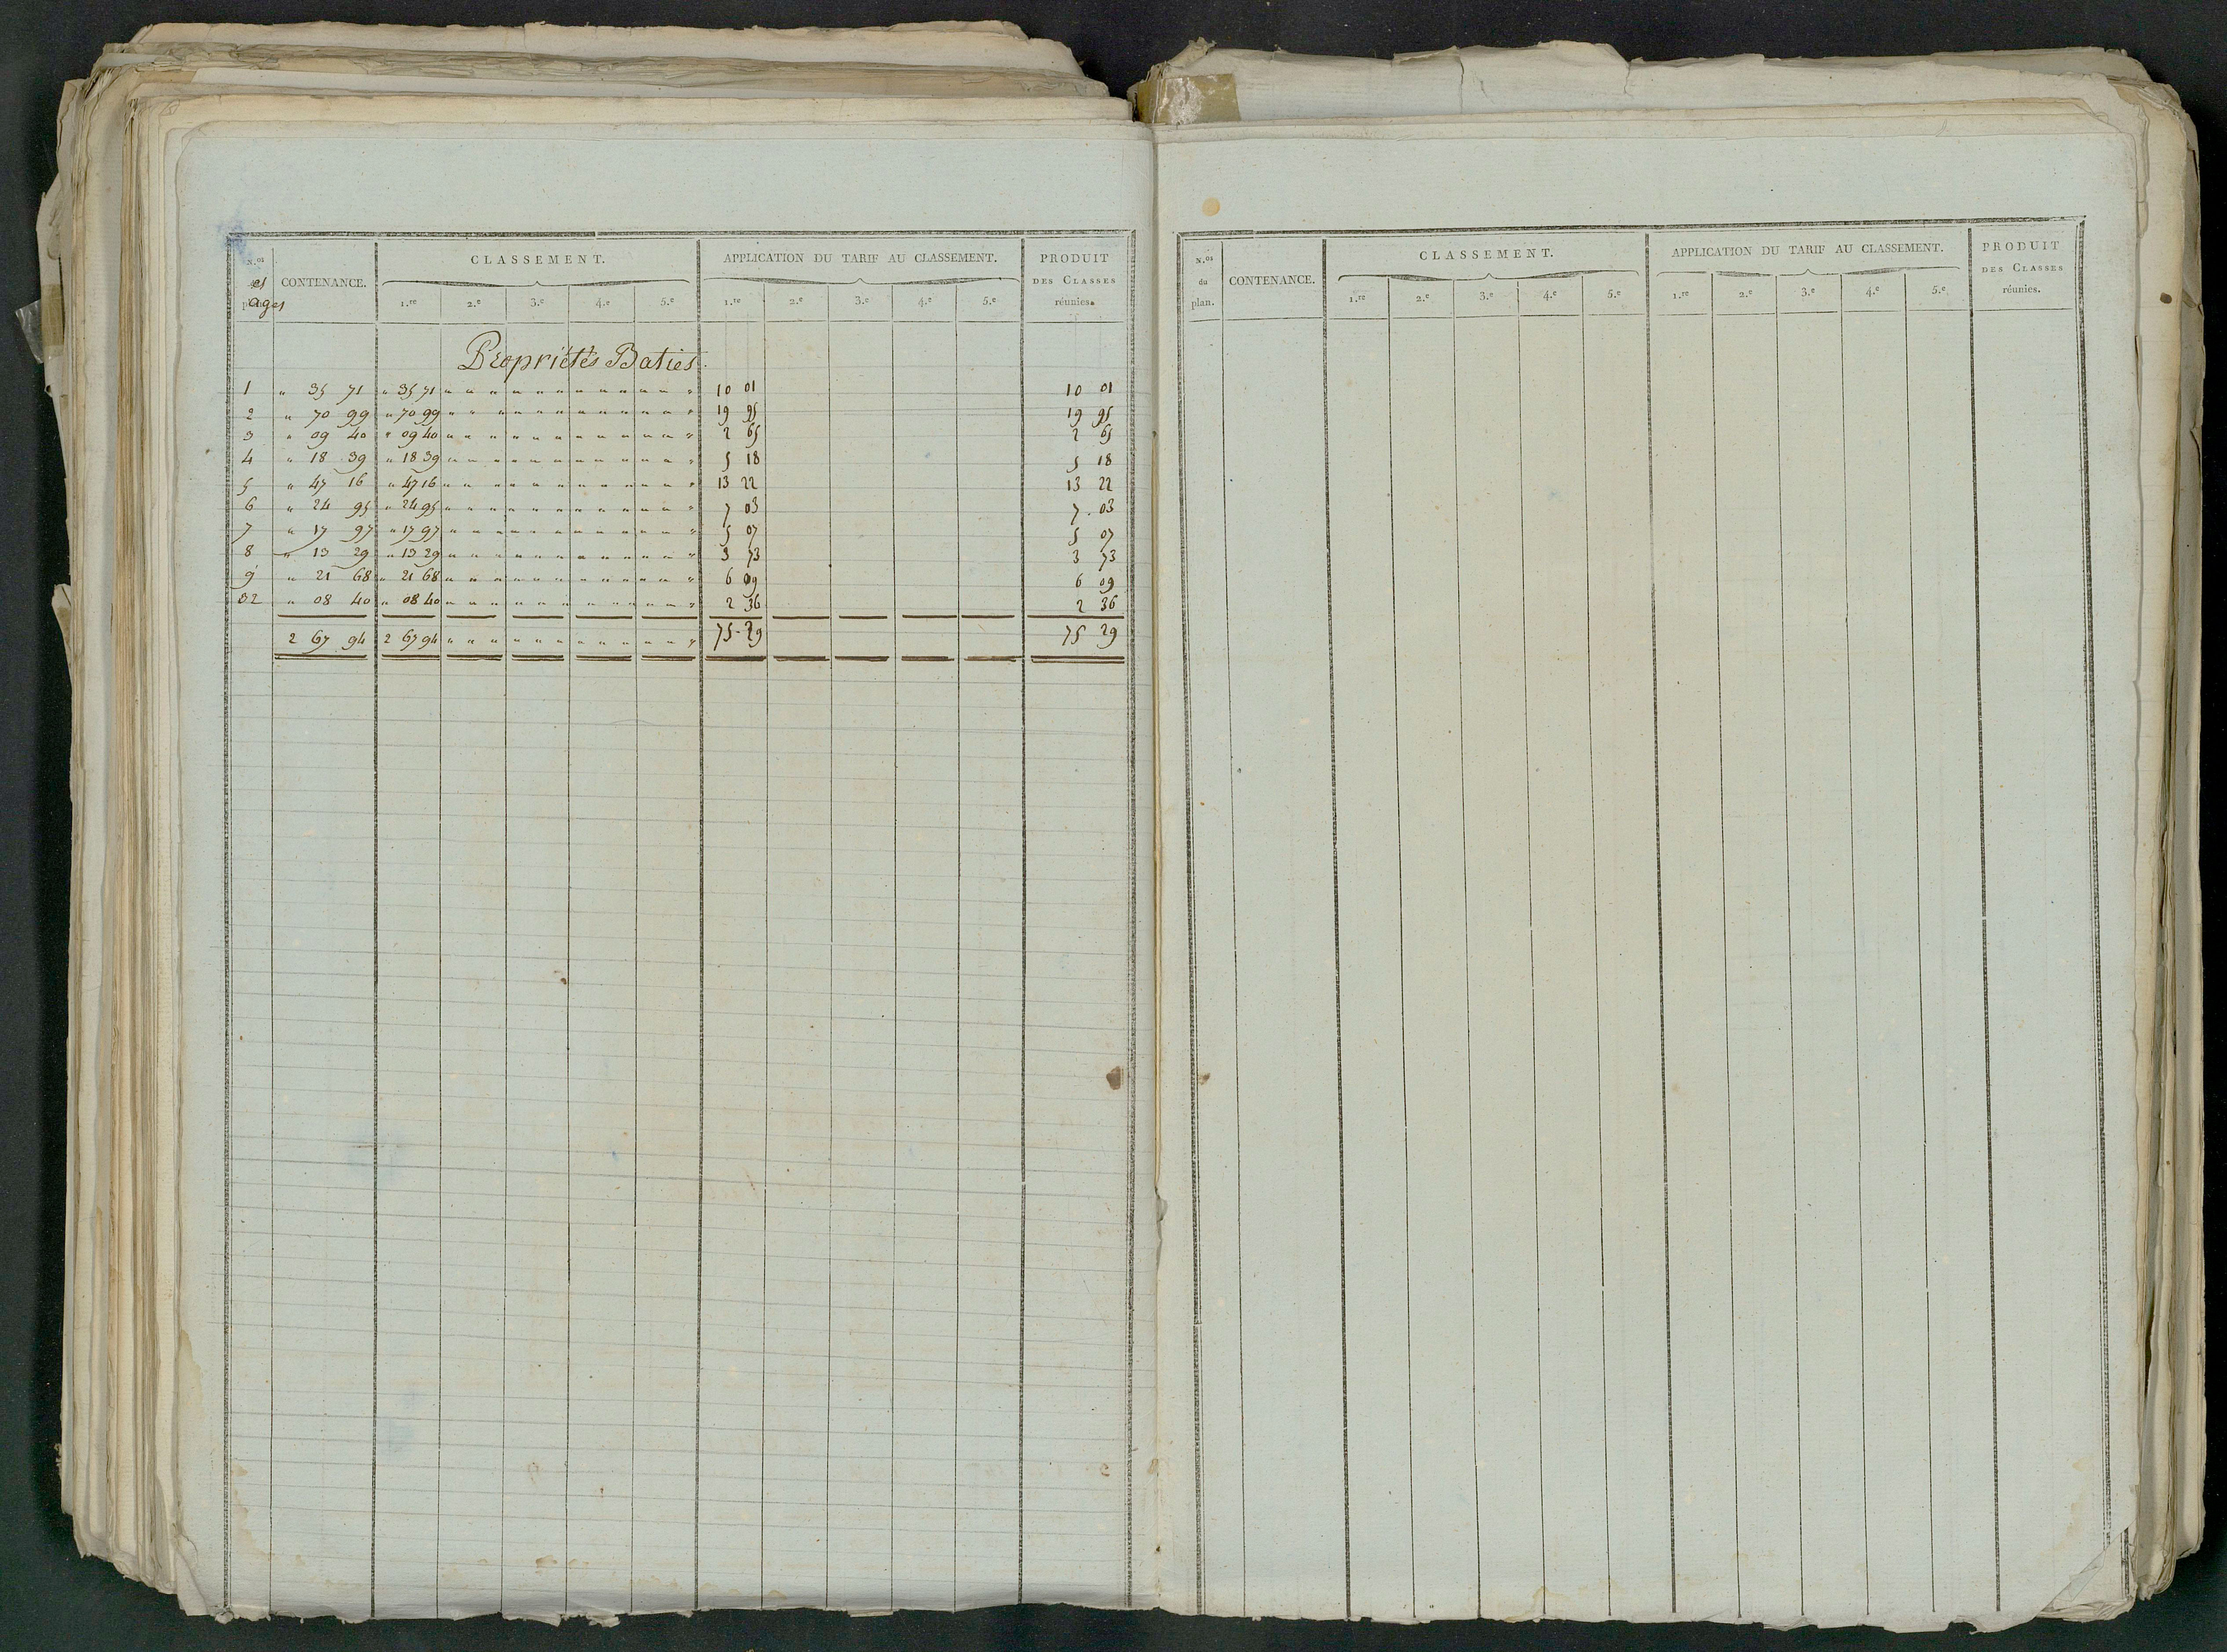 N.os CONTENANCE. CLASSEMENT. APPLICATION DU TARIF AU CLASSEMENT. PRODUIT DES CLASSES réunies.
es ages
1.re 2.e 3.e 4.e 5.e 1.re 2.e 3.e 4.e 5.e
Propriétés Baties.
1 " 35 71 " 35 71 " " " " " " " " " " " " 10 01 10 01
2 " 70 99 " 70 99 " " " " " " " " " " " " 19 95 19 95
3 " 09 40 " 09 40 " " " " " " " " " " " " 2 65 2 65
4 " 18 39 " 18 39 " " " " " " " " " " " " 5 18 5 18
5 " 47 16 " 47 16 " " " " " " " " " " " " 13 22 13 22
6 " 24 95 " 24 95 " " " " " " " " " " " " 7 03 7 03
7 " 17 97 " 17 97 " " " " " " " " " " " " 5 07 5 07
8 " 13 29 " 13 29 " " " " " " " " " " " " 3 73 3 73
9 " 21 68 " 21 68 " " " " " " " " " " " " 6 09 6 09
32 " 08 40 " 08 40 " " " " " " " " " " " " 2 36 2 36
2 67 94 2 67 94 " " " " " " " " " " " " 75 29 75 29
N.os du plan. CONTENANCE. CLASSEMENT. APPLICATION DU TARIF AU CLASSEMENT. PRODUIT DES CLASSES réunies.
1.re 2.e 3.e 4.e 5.e 1.re 2.e 3.e 4.e 5.e